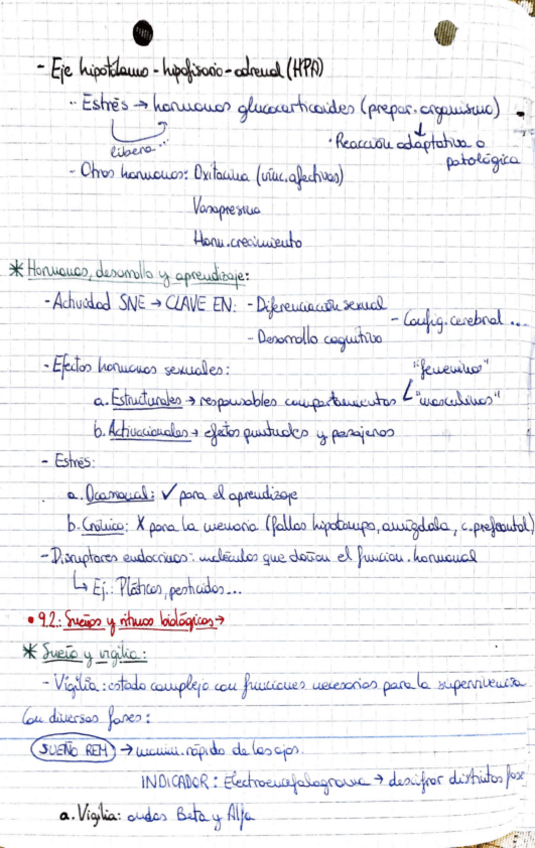 - Eje hipotálamo - hipofisario - adrenal (HPA)
·· Estrés → hormonas glucocorticoides (prepar. organismo)
libera...
· Reacción adaptativa o
patológica
- Otras hormonas: Oxitocina (vínc. afectivos)
Vasopresina
Horm. crecimiento
* Hormonas, desarrollo y aprendizaje:
- Actividad SNE → CLAVE EN: - Diferenciación sexual
- Desarrollo cognitivo
- Config. cerebral ...
- Efectos hormonas sexuales:
"femeninos"
a. Estructurales → responsables comportamientos "masculinos"
b. Activacionales → efectos puntuales y pasajeros
- Estrés:
a. Ocasional: ✓ para el aprendizaje
b. Crónico: X para la memoria (fallos hipotampo, amígdala, c. prefrontal)
- Disruptores endocrinos: moléculas que dañan el funcion. hormonal
↳ Ej.: Plásticos, pesticidas...
• 9.2.: Sueños y ritmos biológicos →
* Sueño y vigilia:
- Vigilia: estado complejo con funciones necesarias para la supervivencia
Con diversas fases:
SUEÑO REM → movim. rápido de los ojos
INDICADOR: Electroencefalograma → descifrar distintas fase
a. Vigilia: ondas Beta y Alfa